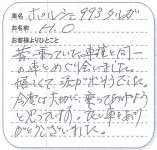 車名 ポルシェ993タルガ
お名前 H.O
お客様よりひとこと
昔、乗っていた車種と同一
の車とめぐり会いました。
嬉しくて涙が出そうでした。
今度は大切に乗って行けよう
と思っています。良い車をあり
がとうございました。